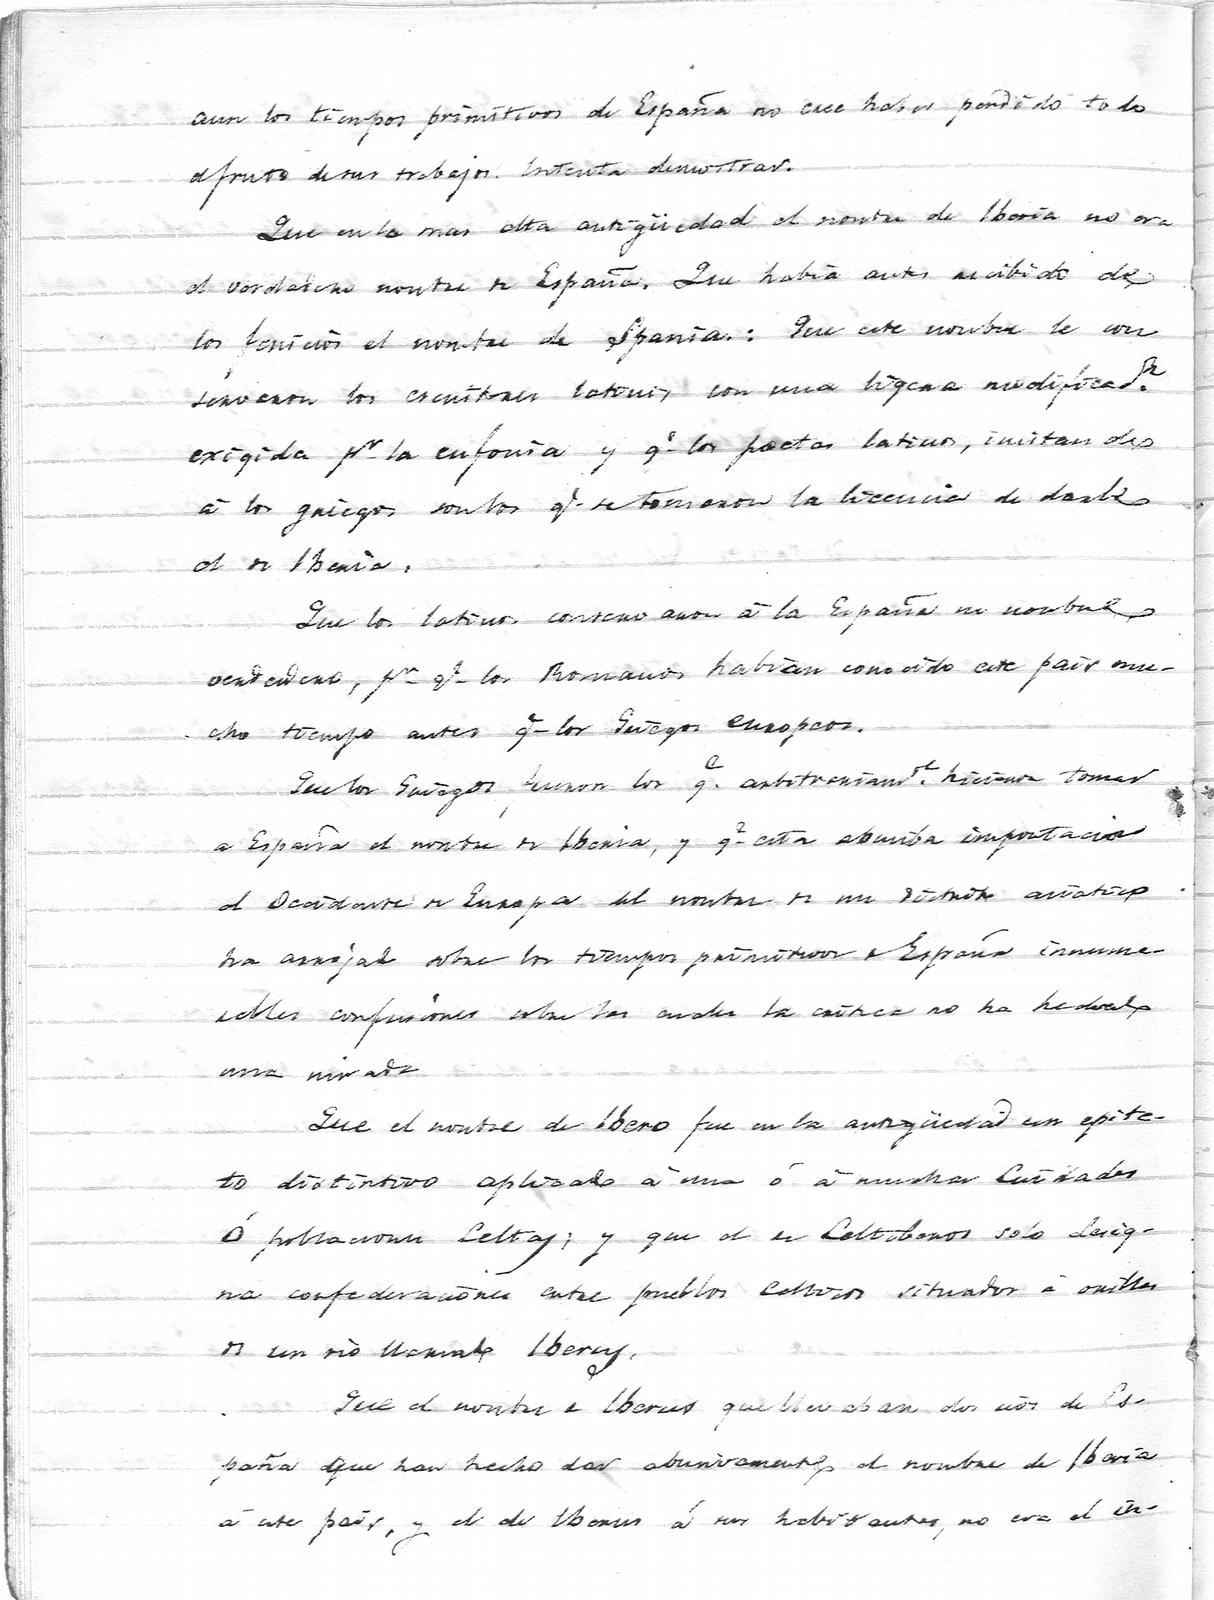 aun los tiempos primitivos de España no cree haber perdido todo
el fruto de sus trabajos. Intenta demostrar.
Que en la mas alta antigüedad el nombre de Iberia no era
el verdadero nombre de España. Que habia antes recibido de
los fenicios el nombre de Spania.: Que este nombre le con
servaron los escritores latinos con una ligera modificacon
exigida pr la eufonia y qe los poetas latinos, imitando
á los griegos son los qe se tomaron la licencia de darle
el de Iberia.
Que los latinos conservaron á la España su nombre
verdadero, pr qe los Romanos habian conocido este pais mu-
cho tiempo antes qe los Griegos europeos.
Que los Griegos fueron los qe arbitrariamte hicieron tomar
a España el nombre de Iberia, y qe esta absurda importacion
al Occidente de Europa del nombre de un distrito asiatico
ha arrojado sobre los tiempos primitivos de España innume-
rables confusiones sobre las cuales la critica no ha hechado
una mirada
Que el nombre de Ibero fue en la antigüedad un epite-
to distintivo aplicado á una ó á muchas Ciudades
ó poblaciones Celtas; y que el de Celtiberos solo desig-
na confederaciones entre pueblos Celticos situados á orillas
de un rio llamado Iberus.
Que el nombre de Iberus que llevaban dos rios de Es-
paña que han hecho dar abusivamente el nombre de Iberia
á este pais, y el de Iberus á sus habitantes, no era el in-